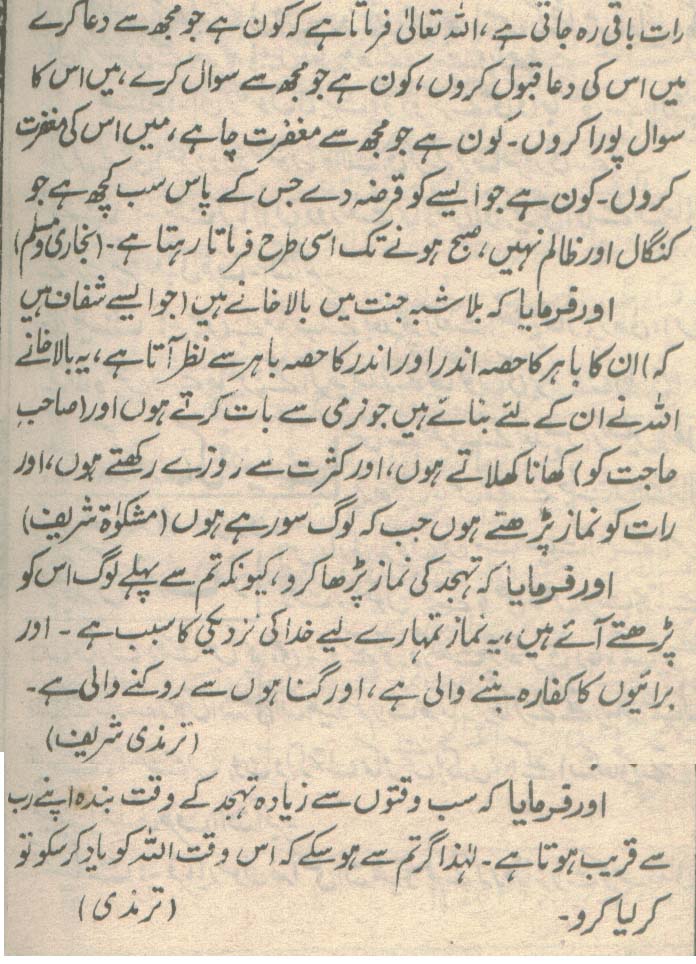 رات باقی رہ جاتی ہے، اللہ تعالیٰ فرماتا ہے کہ کون ہے جو مجھ سے دعا کرے
میں اس کی دعا قبول کروں، کون ہے جو مجھ سے سوال کرے، میں اس کا
سوال پورا کروں۔ کون ہے جو مجھ سے مغفرت چاہے، میں اس کی مغفرت
کروں۔ کون ہے جو ایسے کو قرضہ دے جس کے پاس سب کچھ ہے جو
کنگال اور ظالم نہیں، صبح ہونے تک اسی طرح فرماتا رہتا ہے۔ (بخاری ومسلم)
اور فرمایا کہ بلاشبہ جنت میں بالاخانے ہیں (جو ایسے شفاف ہیں
کہ) ان کا باہر کا حصہ اندر اور اندر کا حصہ باہر سے نظر آتا ہے، یہ بالاخانے
اللہ نے ان کے لئے بنائے ہیں جو نرمی سے بات کرتے ہوں اور (صاحبِ
حاجت کو) کھانا کھلاتے ہوں، اور کثرت سے روزے رکھتے ہوں، اور
رات کو نماز پڑھتے ہوں جب کہ لوگ سو رہے ہوں (مشکوٰۃ شریف)
اور فرمایا کہ تہجد کی نماز پڑھا کرو، کیونکہ تم سے پہلے لوگ اس کو
پڑھتے آئے ہیں، یہ نماز تمہارے لیے خدا کی نزدیکی کا سبب ہے ۔ اور
برائیوں کا کفارہ بننے والی ہے، اور گناہوں سے روکنے والی ہے۔
(ترمذی شریف)
اور فرمایا کہ سب وقتوں سے زیادہ تہجد کے وقت بندہ اپنے رب
سے قریب ہوتا ہے۔ لہٰذا اگر تم سے ہو سکے کہ اس وقت اللہ کو یاد کر سکو تو
کر لیا کرو۔ (ترمذی)